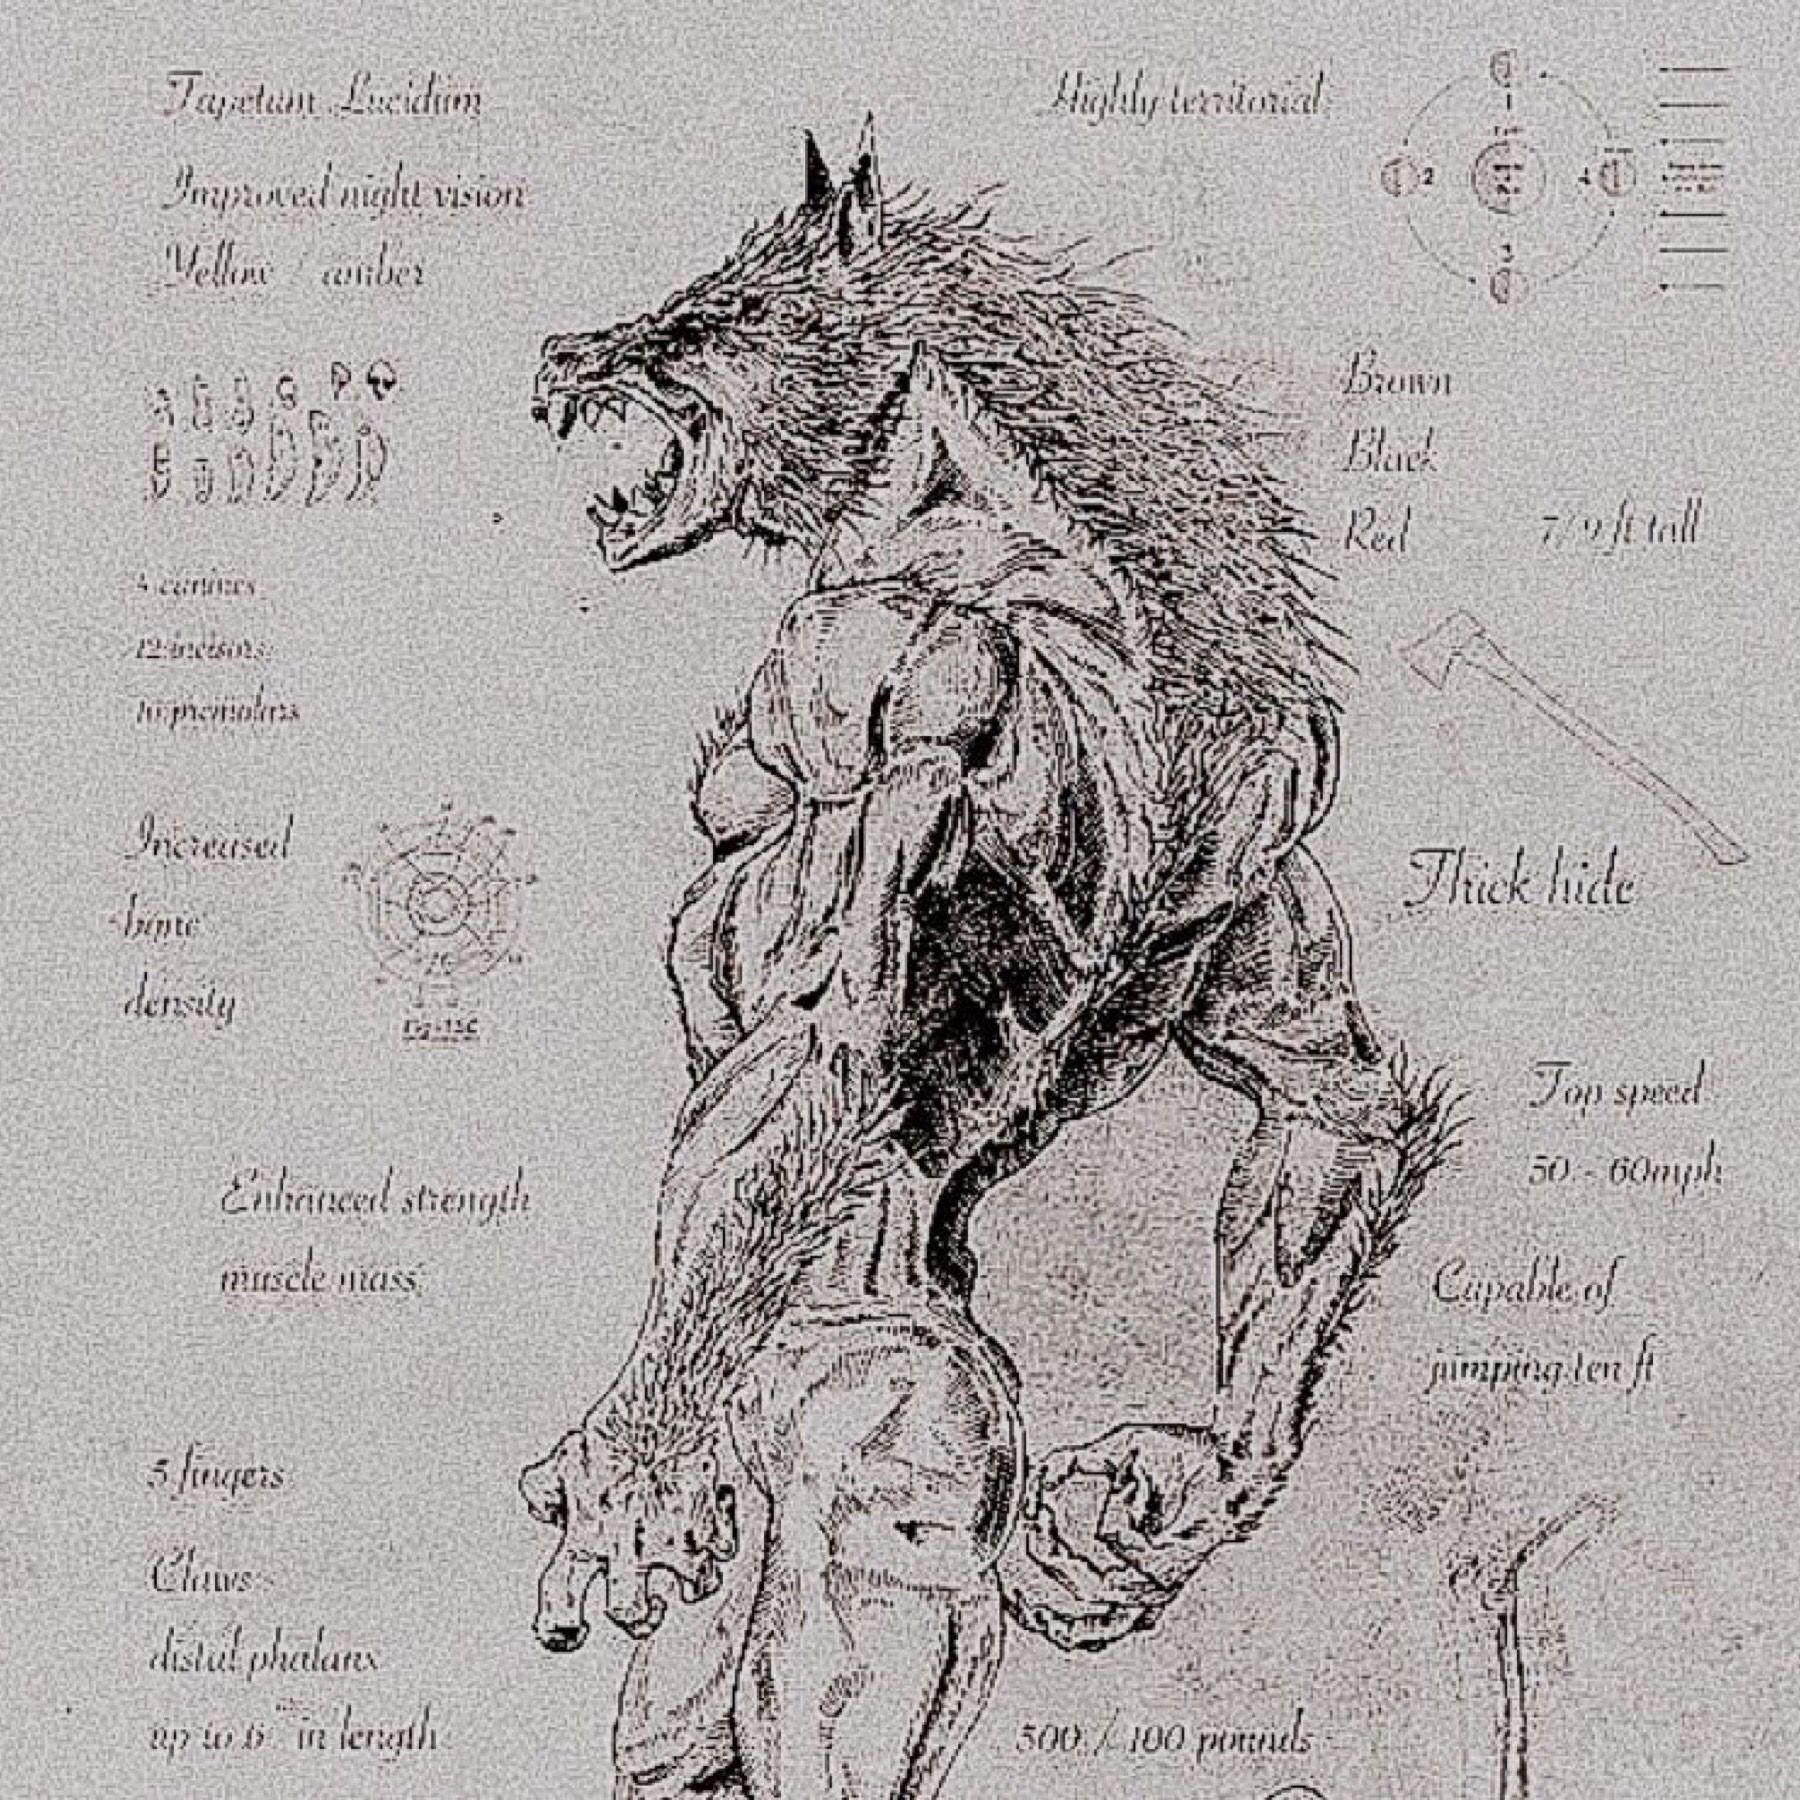 Tapetum Lucidum
Improved night vision
Yellow / amber
4 canines
12 incisors
16 premolars
Increased
bone
density
Enhanced strength
muscle mass
5 fingers
Claws
distal phalanx
up to 6" in length
Highly territorial
2
4
3
Brown
Black
Red
7/9 ft tall
Thick hide
Top speed
50 - 60mph
Capable of
jumping ten ft
pounds